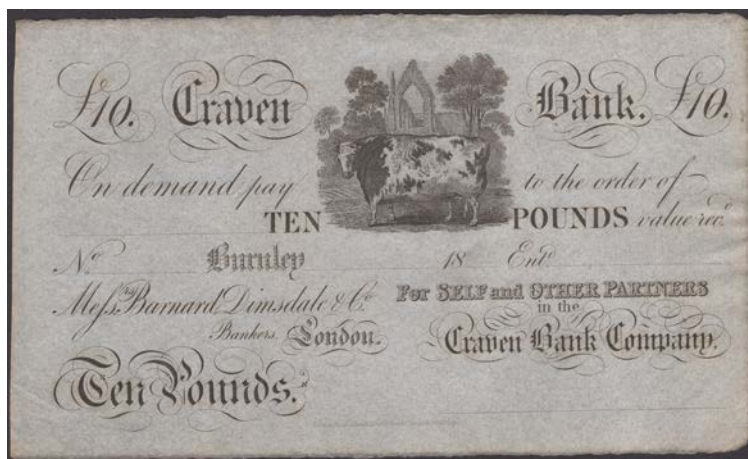 £10. Craven Bank. £10.
On demand pay to the order of
TEN POUNDS value recd.
No Burnley 18 Entd
Messrs Barnard, Dimsdale & Co. For SELF and OTHER PARTNERS
Bankers, London. in the
Craven Bank Company.
Ten Pounds.